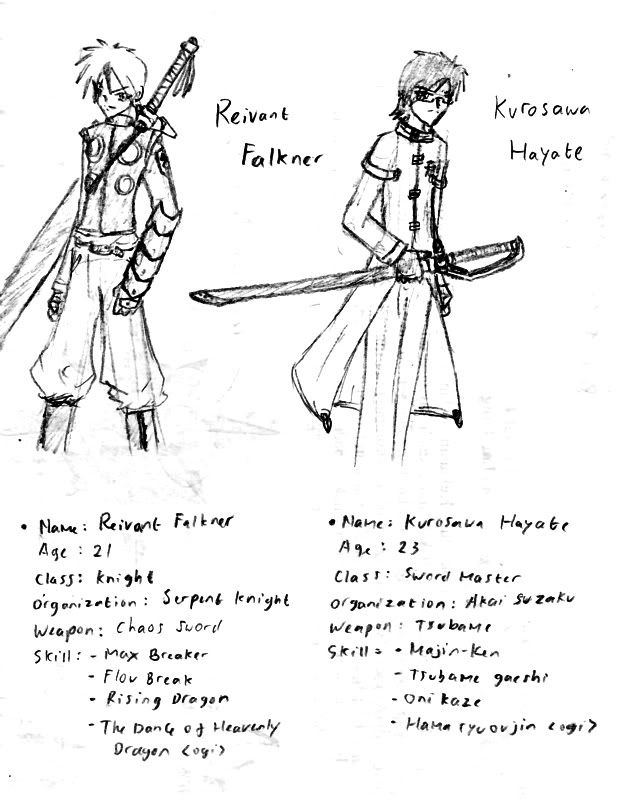 Reivant
Falkner
Kurosawa
Hayate
• Name: Reivant Falkner
Age : 21
Class: Knight
Organization: Serpent Knight
Weapon: Chaos Sword
Skill: - Max Breaker
- Flou Break
- Rising Dragon
- The Dance of Heavenly
Dragon <ogi>
• Name: Kurosawa Hayate
Age : 23
Class: Sword Master
Organization: Akai Suzaku
Weapon: Tsubame
Skill: - Majin-Ken
- Tsubame gaeshi
- Oni kaze
- Hama ryuoujin <ogi>